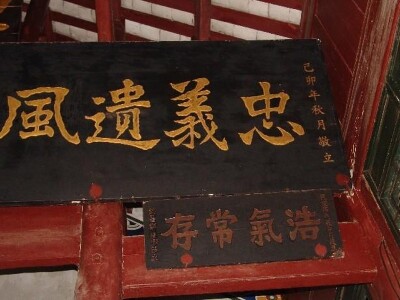 忠義遺風
己卯年秋月敬立
浩氣常存